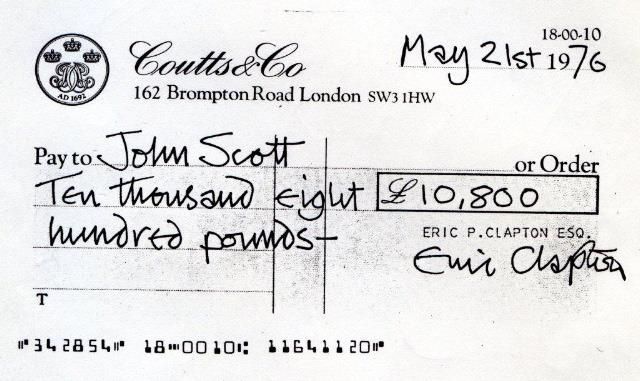 18-00-10
Coutts & Co
May 21st 1976
162 Brompton Road London SW3 1HW
AD 1692
Pay to John Scott or Order
Ten thousand eight £10,800
hundred pounds—
ERIC P.CLAPTON ESQ.
Eric Clapton
T
⑈342854⑈ 18⑉0010⑆ 11641120⑈